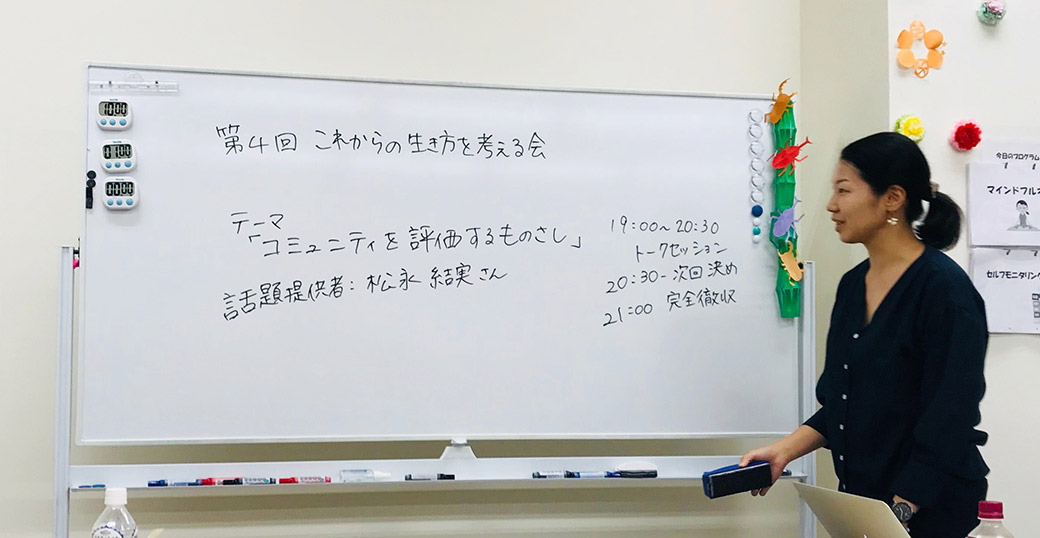 第4回 これからの生き方を考える会
テーマ
「コミュニティを評価するものさし」
話題提供者: 松永 結実さん
19:00~20:30
トークセッション
20:30- 次回決め
21:00 完全撤収
今日のプログラム
マインドフルネ
セルフモニタリング